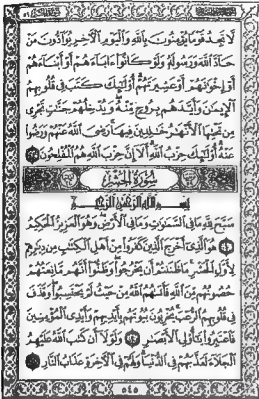 لَا تَجِدُ قَوْمًا يُؤْمِنُونَ بِاللَّهِ وَالْيَوْمِ الْآخِرِ يُوَادُّونَ مَنْ
حَادَّ اللَّهَ وَرَسُولَهُ وَلَوْ كَانُوا ءَابَاءَهُمْ أَوْ أَبْنَاءَهُمْ
أَوْ إِخْوَانَهُمْ أَوْ عَشِيرَتَهُمْ أُولَئِكَ كَتَبَ فِي قُلُوبِهِمُ
الْإِيمَانَ وَأَيَّدَهُم بِرُوحٍ مِّنْهُ وَيُدْخِلُهُمْ جَنَّاتٍ تَجْرِي
مِن تَحْتِهَا الْأَنْهَارُ خَالِدِينَ فِيهَا رَضِيَ اللَّهُ عَنْهُمْ وَرَضُوا
عَنْهُ أُولَئِكَ حِزْبُ اللَّهِ أَلَا إِنَّ حِزْبَ اللَّهِ هُمُ الْمُفْلِحُونَ ٢٢
سُورَةُ الْحَشْرِ
بِسْمِ اللَّهِ الرَّحْمَنِ الرَّحِيمِ
سَبَّحَ لِلَّهِ مَا فِي السَّمَاوَاتِ وَمَا فِي الْأَرْضِ وَهُوَ الْعَزِيزُ الْحَكِيمُ
١ هُوَ الَّذِي أَخْرَجَ الَّذِينَ كَفَرُوا مِنْ أَهْلِ الْكِتَابِ مِن دِيَارِهِمْ
لِأَوَّلِ الْحَشْرِ مَا ظَنَنتُمْ أَن يَخْرُجُوا وَظَنُّوا أَنَّهُم مَّانِعَتُهُمْ
حُصُونُهُم مِّنَ اللَّهِ فَأَتَاهُمُ اللَّهُ مِنْ حَيْثُ لَمْ يَحْتَسِبُوا وَقَذَفَ
فِي قُلُوبِهِمُ الرُّعْبَ يُخْرِبُونَ بُيُوتَهُم بِأَيْدِيهِمْ وَأَيْدِي الْمُؤْمِنِينَ
فَاعْتَبِرُوا يَا أُولِي الْأَبْصَارِ ٢ وَلَوْلَا أَن كَتَبَ اللَّهُ عَلَيْهِمُ
الْجَلَاءَ لَعَذَّبَهُمْ فِي الدُّنْيَا وَلَهُمْ فِي الْآخِرَةِ عَذَابُ النَّارِ ٣
٥٤٥